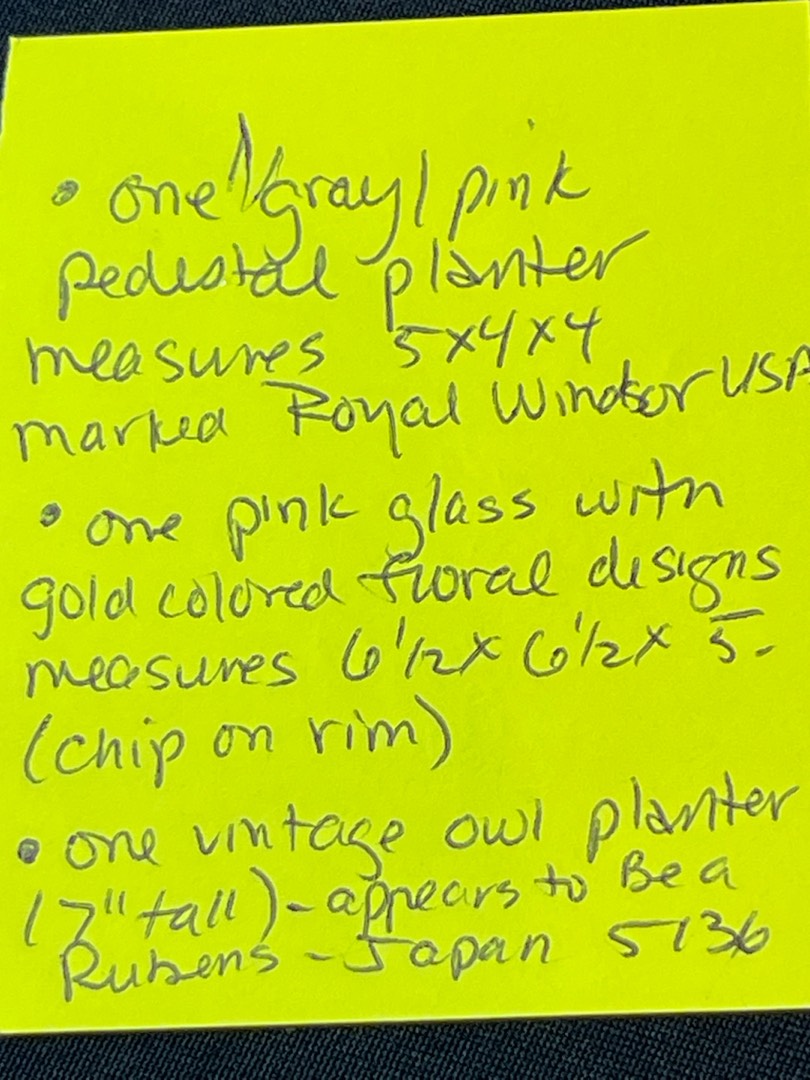 • one gray/pink
pedestal planter
measures 5x4x4
marked Royal Windsor USA
• one pink glass with
gold colored floral designs
measures 6 1/2 x 6 1/2 x 5.
(chip on rim)
• one vintage owl planter
(7" tall) - appears to Be a
Rubens - Japan 5136